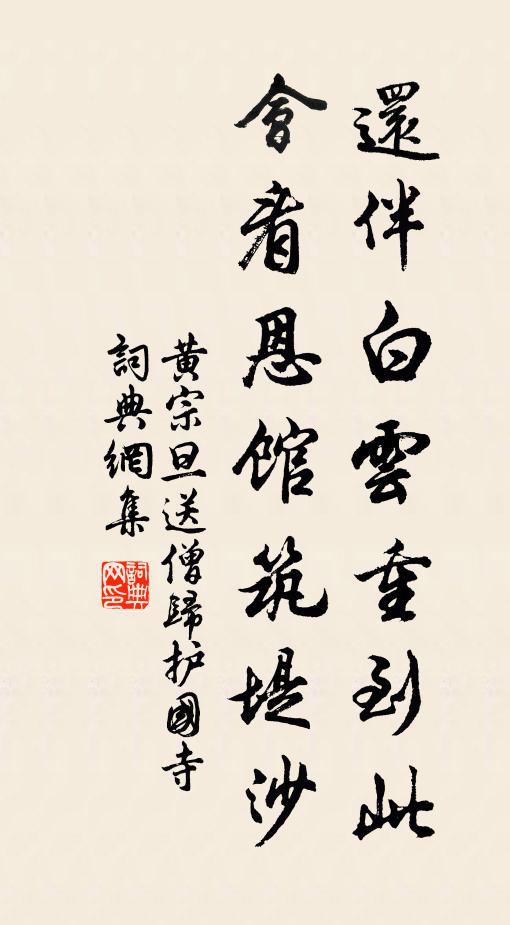 還伴白雲重到此
會看恩館筑堤沙
黃宗旦送僧歸护國寺
詞典網集
詞典網印